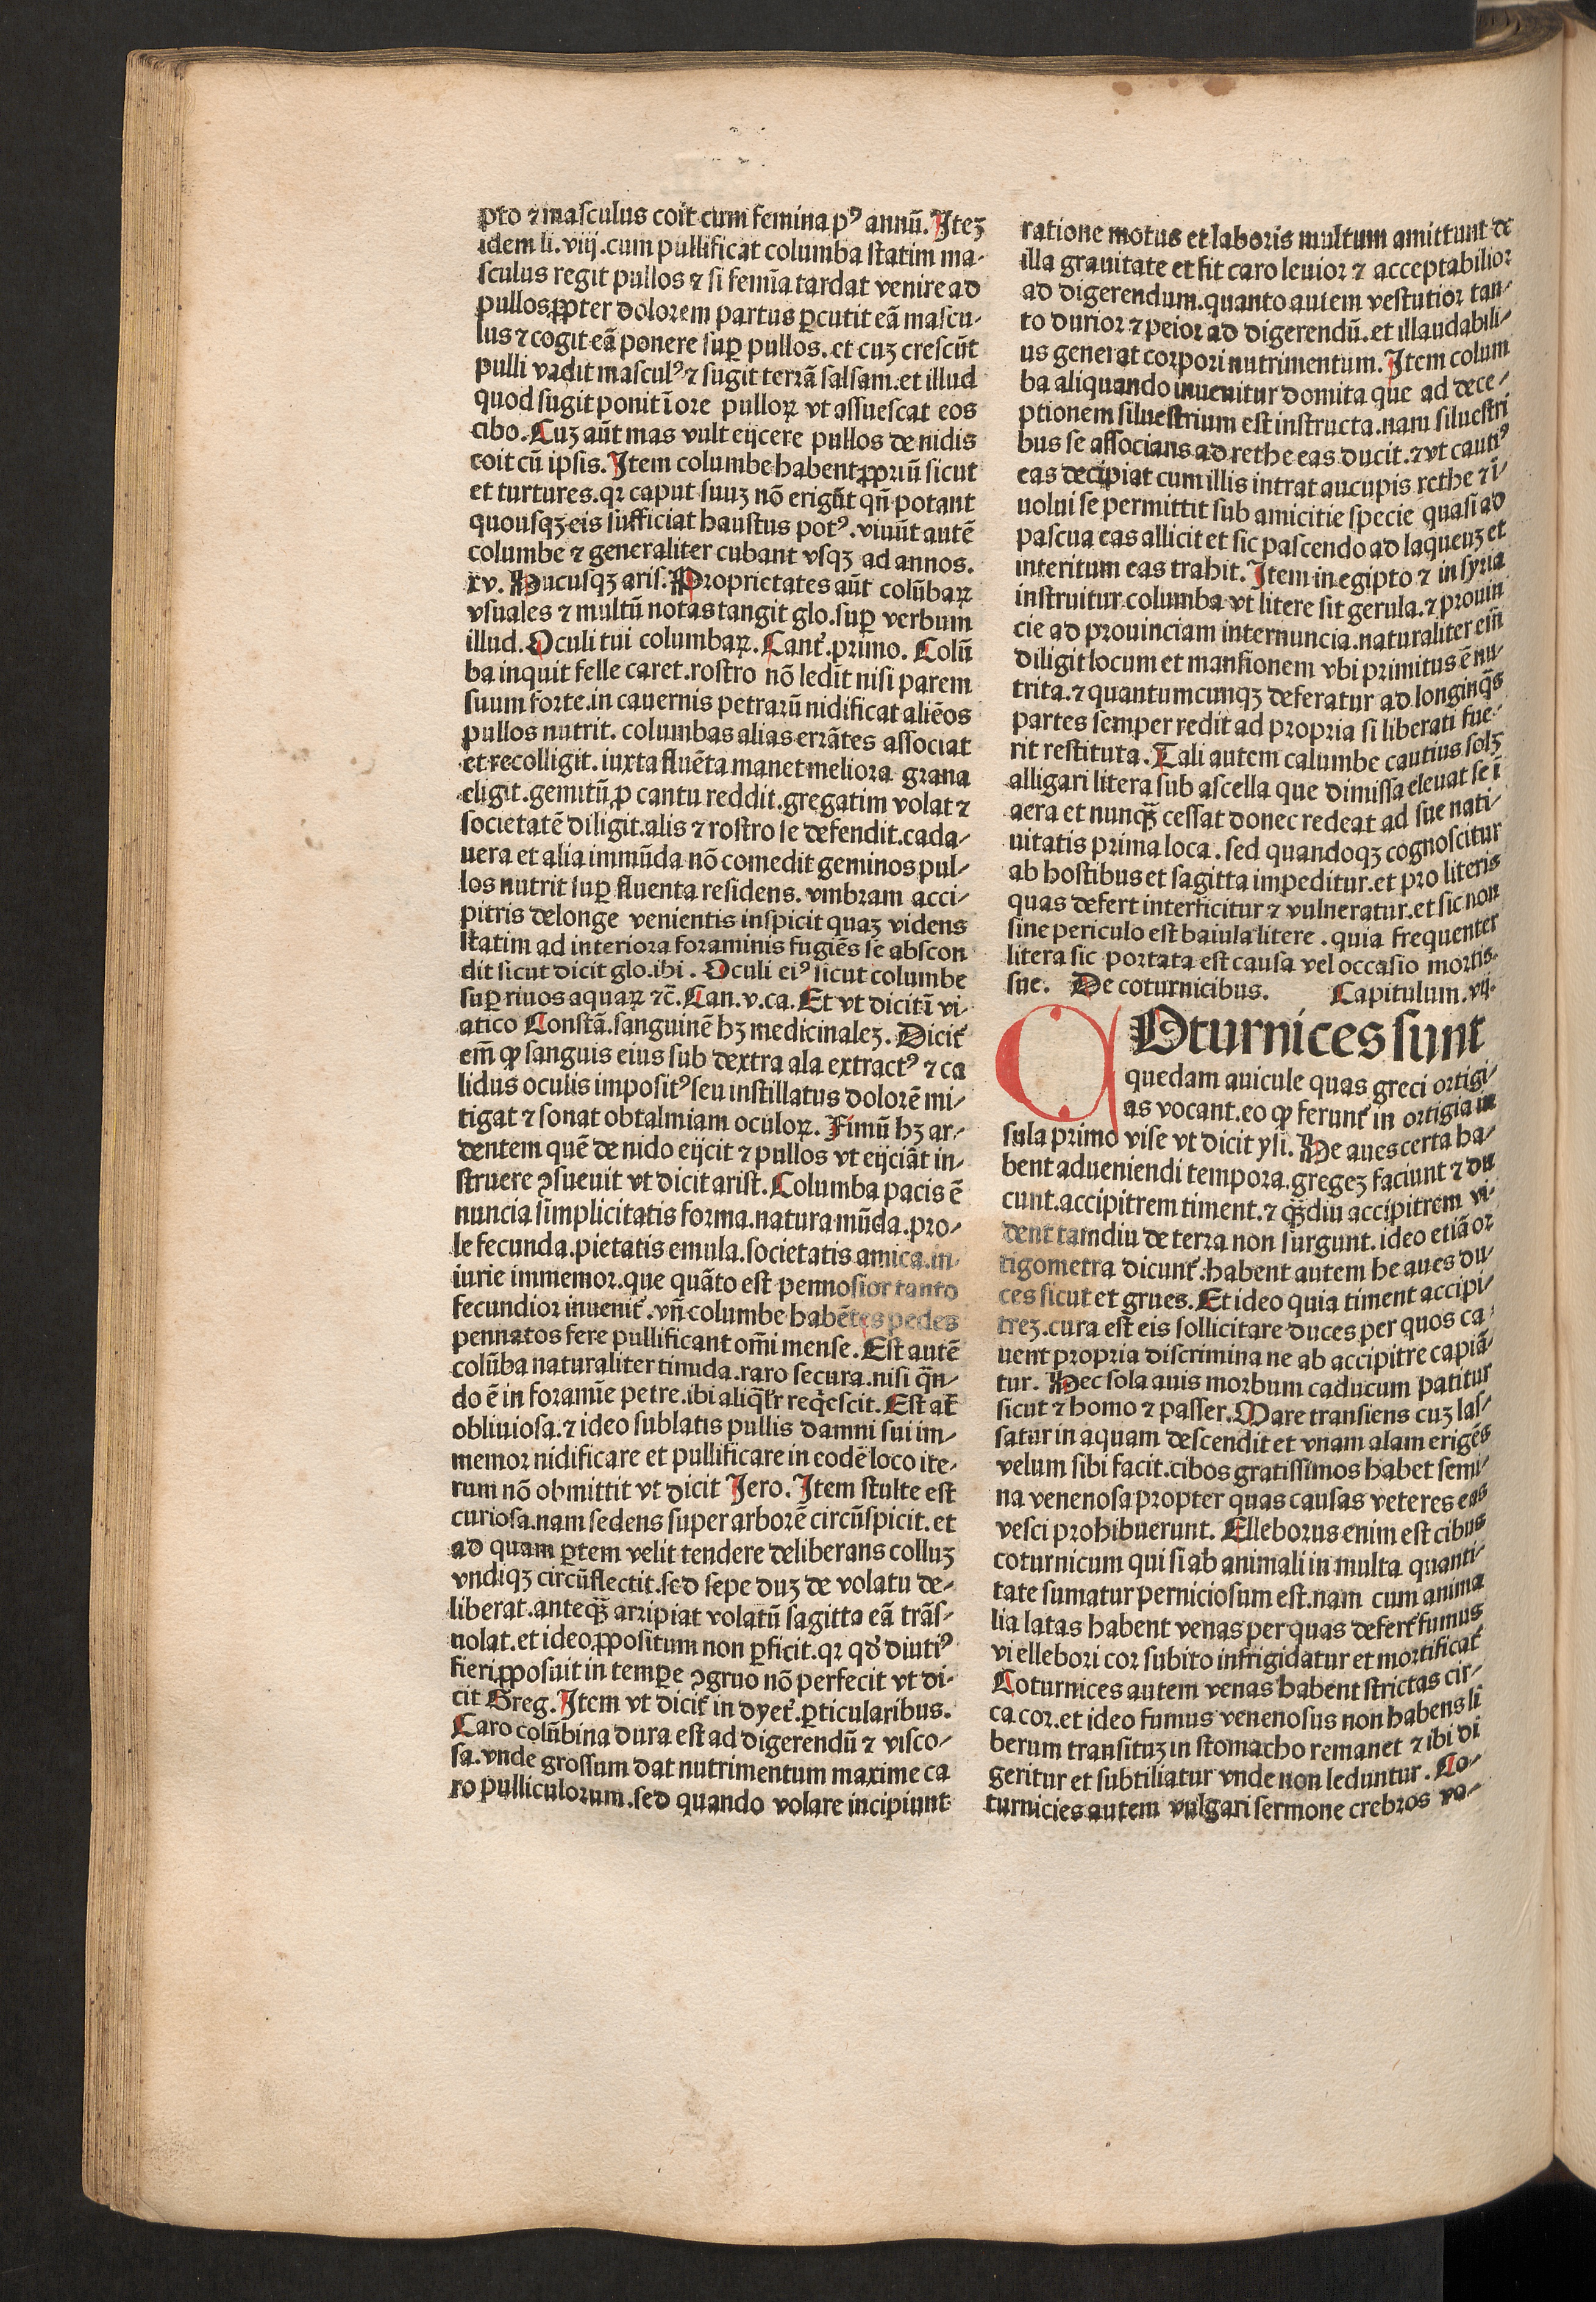 pto ⁊ masculus coit cum femina pꝰ annū. Iteꝫ
idem li. viij. cum pullificat columba statim ma-
sculus regit pullos ⁊ si femīa tardat venire ad
pullos ꝓpter dolorem partus ꝑcutit eā mascu-
lus ⁊ cogit eā ponere suꝑ pullos. et cuꝫ crescūt
pulli vadit masculꝰ ⁊ sugit terrā salsam. et illud
quod sugit ponit ī ore pulloꝝ vt assuescat eos
cibo. Cuꝫ aūt mas vult eijcere pullos de nidis
coit cū ipsis. Item columbe habent ꝓpriū sicut
et turtures. qr caput suuꝫ nō erigūt qn̄ potant
quousqꝫ eis sufficiat haustus potꝰ. viuūt autē
columbe ⁊ generaliter cubant vsqꝫ ad annos.
xv. Hucusqꝫ aris. Proprietates aūt colūbaꝝ
vsuales ⁊ multū notas tangit glo. suꝑ verbum
illud. Oculi tui columbaꝝ. Cant̄. primo. Colū
ba inquit felle caret. rostro nō ledit nisi parem
suum forte. in cauernis petrarū nidificat aliēos
pullos nutrit. columbas alias errātes associat
et recolligit. iuxta fluēta manet meliora grana
eligit. gemitū ꝓ cantu reddit. gregatim volat ⁊
societatē diligit. alis ⁊ rostro se defendit. cada-
uera et alia immūda nō comedit geminos pul-
los nutrit suꝑ fluenta residens. vmbram acci-
pitris delonge venientis inspicit quaꝫ videns
statim ad interiora foraminis fugiēs se abscon
dit sicut dicit glo. ibi. Oculi eiꝰ sicut columbe
suꝑ riuos aquaꝝ ⁊c̄. Can. v. ca. Et vt dicit ī vi-
atico Constā. sanguinē hꝫ medicinaleꝫ. Dicit̄
em̄ ꝙ sanguis eius sub dextra ala extractꝰ ⁊ ca
lidus oculis impositꝰ seu instillatus dolorē mi-
tigat ⁊ sonat obtalmiam oculoꝝ. Fimū hꝫ ar-
dentem quē de nido eijcit ⁊ pullos vt eijciāt in-
struere ꝯsueuit vt dicit arist. Columba pacis ē
nuncia simplicitatis forma. natura mūda. pro-
le fecunda. pietatis emula. societatis amica. in-
iurie immemor. que quāto est pennosior tanto
fecundior inuenit̄. vn̄ columbe habētes pedes
pennatos fere pullificant om̄i mense. Est autē
colūba naturaliter timida. raro secura. nisi qn̄-
do ē in foramīe petre. ibi aliqͥlr reqͥescit. Est at̄
obliuiosa. ⁊ ideo sublatis pullis damni sui im-
memor nidificare et pullificare in eodē loco ite-
rum nō obmittit vt dicit Iero. Item stulte est
curiosa. nam sedens super arborē circūspicit. et
ad quam ꝑtem velit tendere deliberans colluꝫ
vndiqꝫ circūflectit. sed sepe duꝫ de volatu de-
liberat. anteqꝫ̄ arripiat volatū sagitta eā trās-
uolat. et ideo ꝓpositum non ꝑficit. qr qđ diutiꝰ
fieri ꝓposuit in tempe ꝯgruo nō perfecit vt di-
cit Greg. Item vt dicit̄ in dyet̄. ꝑticularibus.
Caro colūbina dura est ad digerendū ⁊ visco-
sa. vnde grossum dat nutrimentum maxime ca
ro pulliculorum. sed quando volare incipiunt
ratione motus et laboris multum amittunt de
illa grauitate et fit caro leuior ⁊ acceptabilior
ad digerendum. quanto autem vestutior tan-
to durior ⁊ peior ad digerendū. et illaudabili-
us generat corpori nutrimentum. Item colum
ba aliquando inuenitur domita que ad dece-
ptionem siluestrium est instructa. nam siluestri
bus se associans ad rethe eas ducit. ⁊ vt cautiꝰ
eas decipiat cum illis intrat aucupis rethe ⁊ ī-
uolui se permittit sub amicitie specie quasi ad
pascua eas allicit et sic pascendo ad laqueuꝫ et
interitum eas trahit. Item in egipto ⁊ in syria
instruitur columba vt litere sit gerula. ⁊ prouin
cie ad prouinciam internuncia. naturaliter em̄
diligit locum et mansionem vbi primitus ē nu-
trita. ⁊ quantumcunqꝫ deferatur ad longinqͣs
partes semper redit ad propria si liberati fue-
rit restituta. Tali autem calumbe cautius solꝫ
alligari litera sub ascella que dimissa eleuat se ī
aera et nunqꝫ̄ cessat donec redeat ad sue nati-
uitatis prima loca. sed quandoqꝫ cognoscitur
ab hostibus et sagitta impeditur. et pro literis
quas defert interficitur ⁊ vulneratur. et sic non
sine periculo est baiula litere. quia frequenter
litera sic portata est causa vel occasio mortis
sue. De coturnicibus. Capitulum. vij.
COturnices sunt
quedam auicule quas greci ortigi-
as vocant. eo ꝙ ferunt̄ in ortigia in
sula primo vise vt dicit ysi. He aues certa ha-
bent adueniendi tempora. gregeꝫ faciunt ⁊ du
cunt. accipitrem timent. ⁊ qꝫ̄diu accipitrem vi-
dent tamdiu de terra non surgunt. ideo etiā or
tigometra dicunt̄. habent autem he aues du-
ces sicut et grues. Et ideo quia timent accipi-
treꝫ. cura est eis sollicitare duces per quos ca-
uent propria discrimina ne ab accipitre capiā-
tur. Hec sola auis morbum caducum patitur
sicut ⁊ homo ⁊ passer. Mare transiens cuꝫ las-
satur in aquam descendit et vnam alam erigēs
velum sibi facit. cibos gratissimos habet semi-
na venenosa propter quas causas veteres eas
vesci prohibuerunt. Elleborus enim est cibus
coturnicum qui si ab animali in multa quanti-
tate sumatur perniciosum est. nam cum anima
lia latas habent venas per quas defert̄ fumus
vi ellebori cor subito infrigidatur et mortificat̄
Coturnices autem venas habent strictas cir-
ca cor. et ideo fumus venenosus non habens li
berum transituꝫ in stomacho remanet ⁊ ibi di
geritur et subtiliatur vnde non leduntur. Co-
turnicies autem vulgari sermone crebros vo-